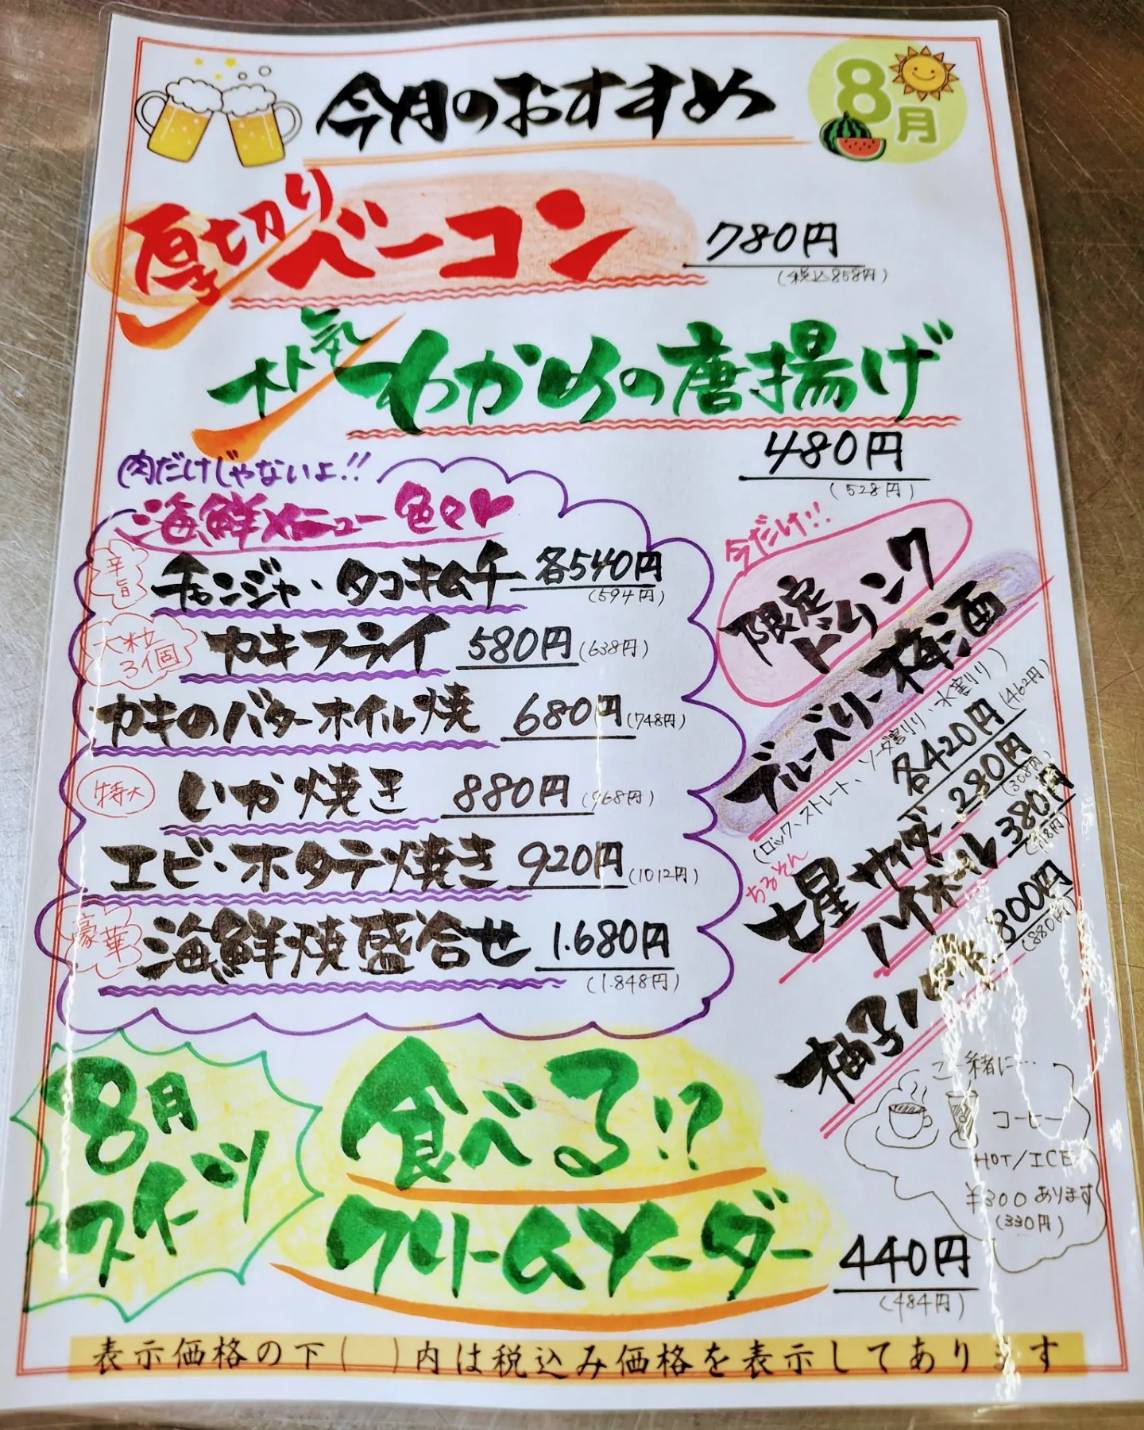 今月のおすすめ
8月
厚切りベーコン 780円
(税込858円)
大人気 わかめの唐揚げ
480円
(528円)
肉だけじゃないよ!!
海鮮メニュー 色々♥
辛旨 チャンジャ・タコキムチ 各540円
(594円)
大粒3個 カキフライ 580円(638円)
カキのバターホイル焼 680円(748円)
特大 いか焼き 880円(968円)
エビ・ホタテ焼き 920円(1012円)
豪華 海鮮焼盛合せ 1.680円
(1.848円)
今だけ!!
限定ドリンク
ブルーベリー梅酒
(ロック、ストレート、ソーダ割り、水割り)
各420円(462円)
ちるそん
七星サイダー 280円
(308円)
ハイボール 380円
(418円)
柚子ハイボール 800円
(880円)
8月スイーツ
食べる!?
クリームソーダー 440円
(484円)
ご一緒に…
コーヒー
HOT/ICE
¥300あります
(330円)
表示価格の下( )内は税込み価格を表示してあります